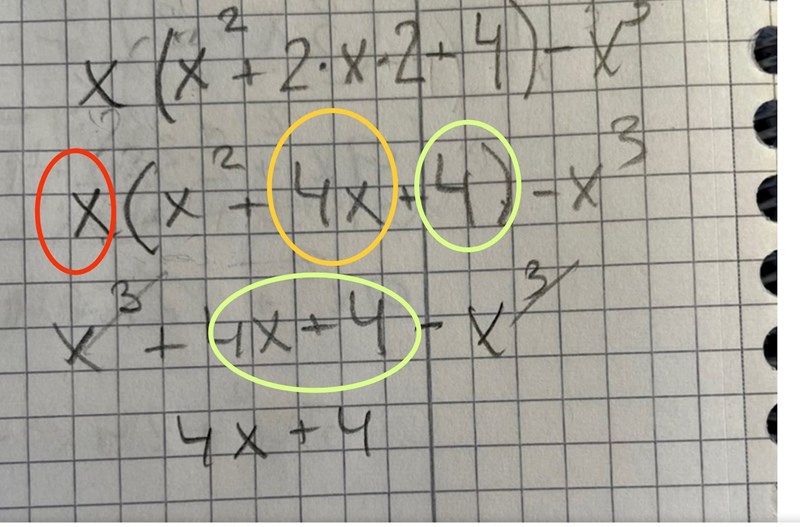 x(x² + 2·x·2 + 4) - x³
x(x² + 4x + 4) - x³
x³ + 4x + 4 - x³
4x + 4